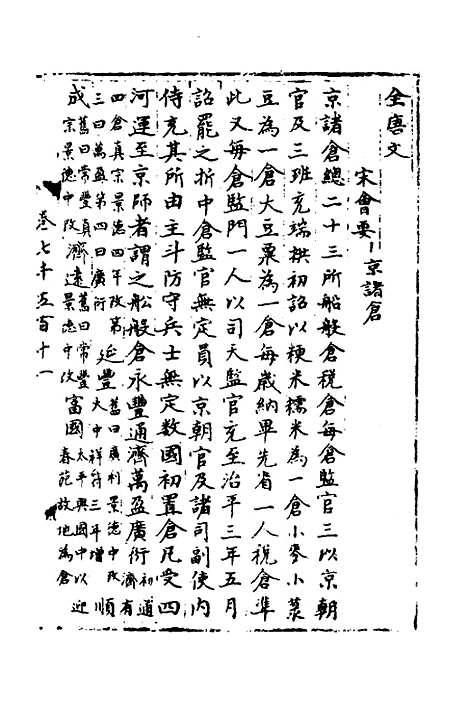 全唐文
宋會要 京諸倉
京諸倉總二十三所船般倉稅倉每倉監官三以京朝
官及三班充端拱初詔以粳米糯米為一倉小麥小菉
豆為一倉大豆粟為一倉每歲納畢先省一人稅倉準
此又每倉監門一人以司天監官充至治平三年五月
詔罷之折中倉監官無定員以京朝官及諸司副使內
侍充其所由主斗防守兵士無定數國初置倉凡受四
河運至京師者謂之船般倉永豐通濟萬盈廣衍初通濟有
四倉真宗景德四年改第三曰萬盈第四曰廣衍延豐舊曰廣利景德中改大中祥符三年增順
成舊曰常豐真宗景德中改濟遠舊曰常豐景德中改富國太平興國中以春苑故地為倉迎
卷七千五百十一